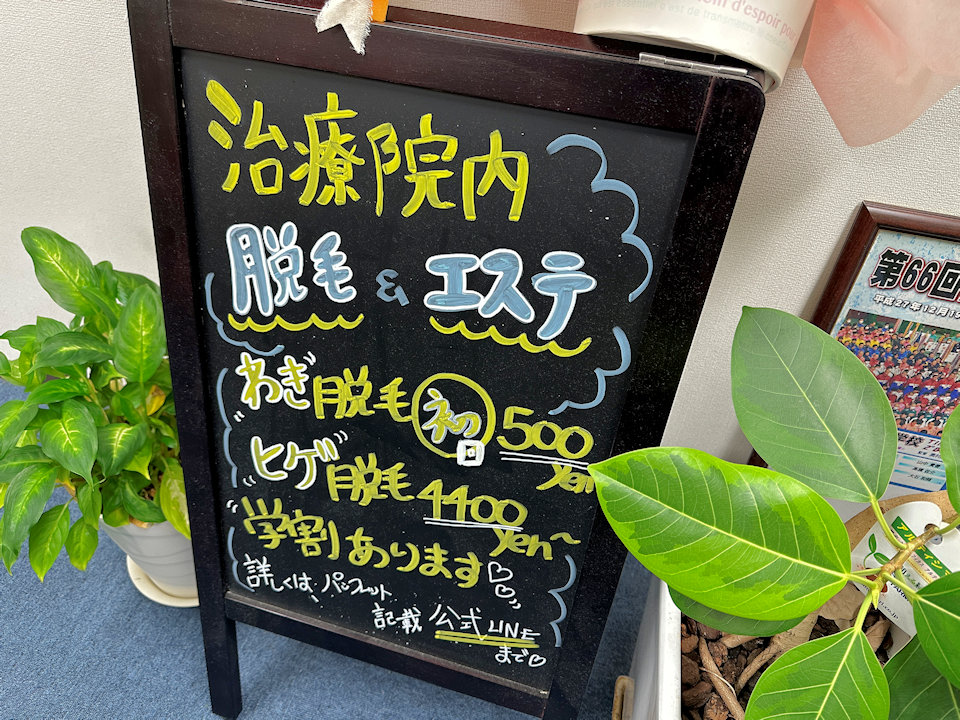 治療院内
脱毛 & エステ
わき゛脱毛 初回 500
yen
ヒゲ脱毛 4400
yen~
学割あります♡♡
詳しくは、パンフレット
記載 公式LINE
まで♡
m d'espoir pour
第66回
平成27年12月19